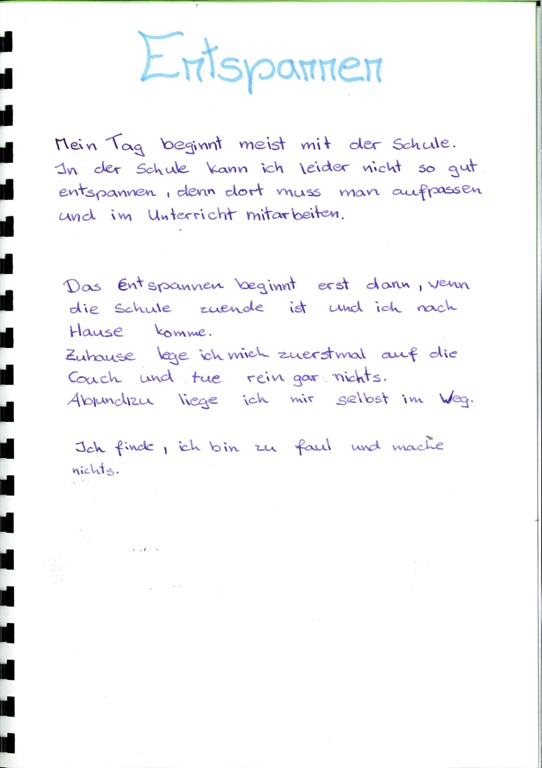 Entspannen
Mein Tag beginnt meist mit der Schule.
In der Schule kann ich leider nicht so gut
entspannen, denn dort muss man aufpassen
und im Unterricht mitarbeiten.
Das Entspannen beginnt erst dann, wenn
die Schule zuende ist und ich nach
Hause komme.
Zuhause lege ich mich zuerstmal auf die
Couch und tue rein gar nichts.
Abundzu liege ich mir selbst im Weg.
Ich finde, ich bin zu faul und mache
nichts.